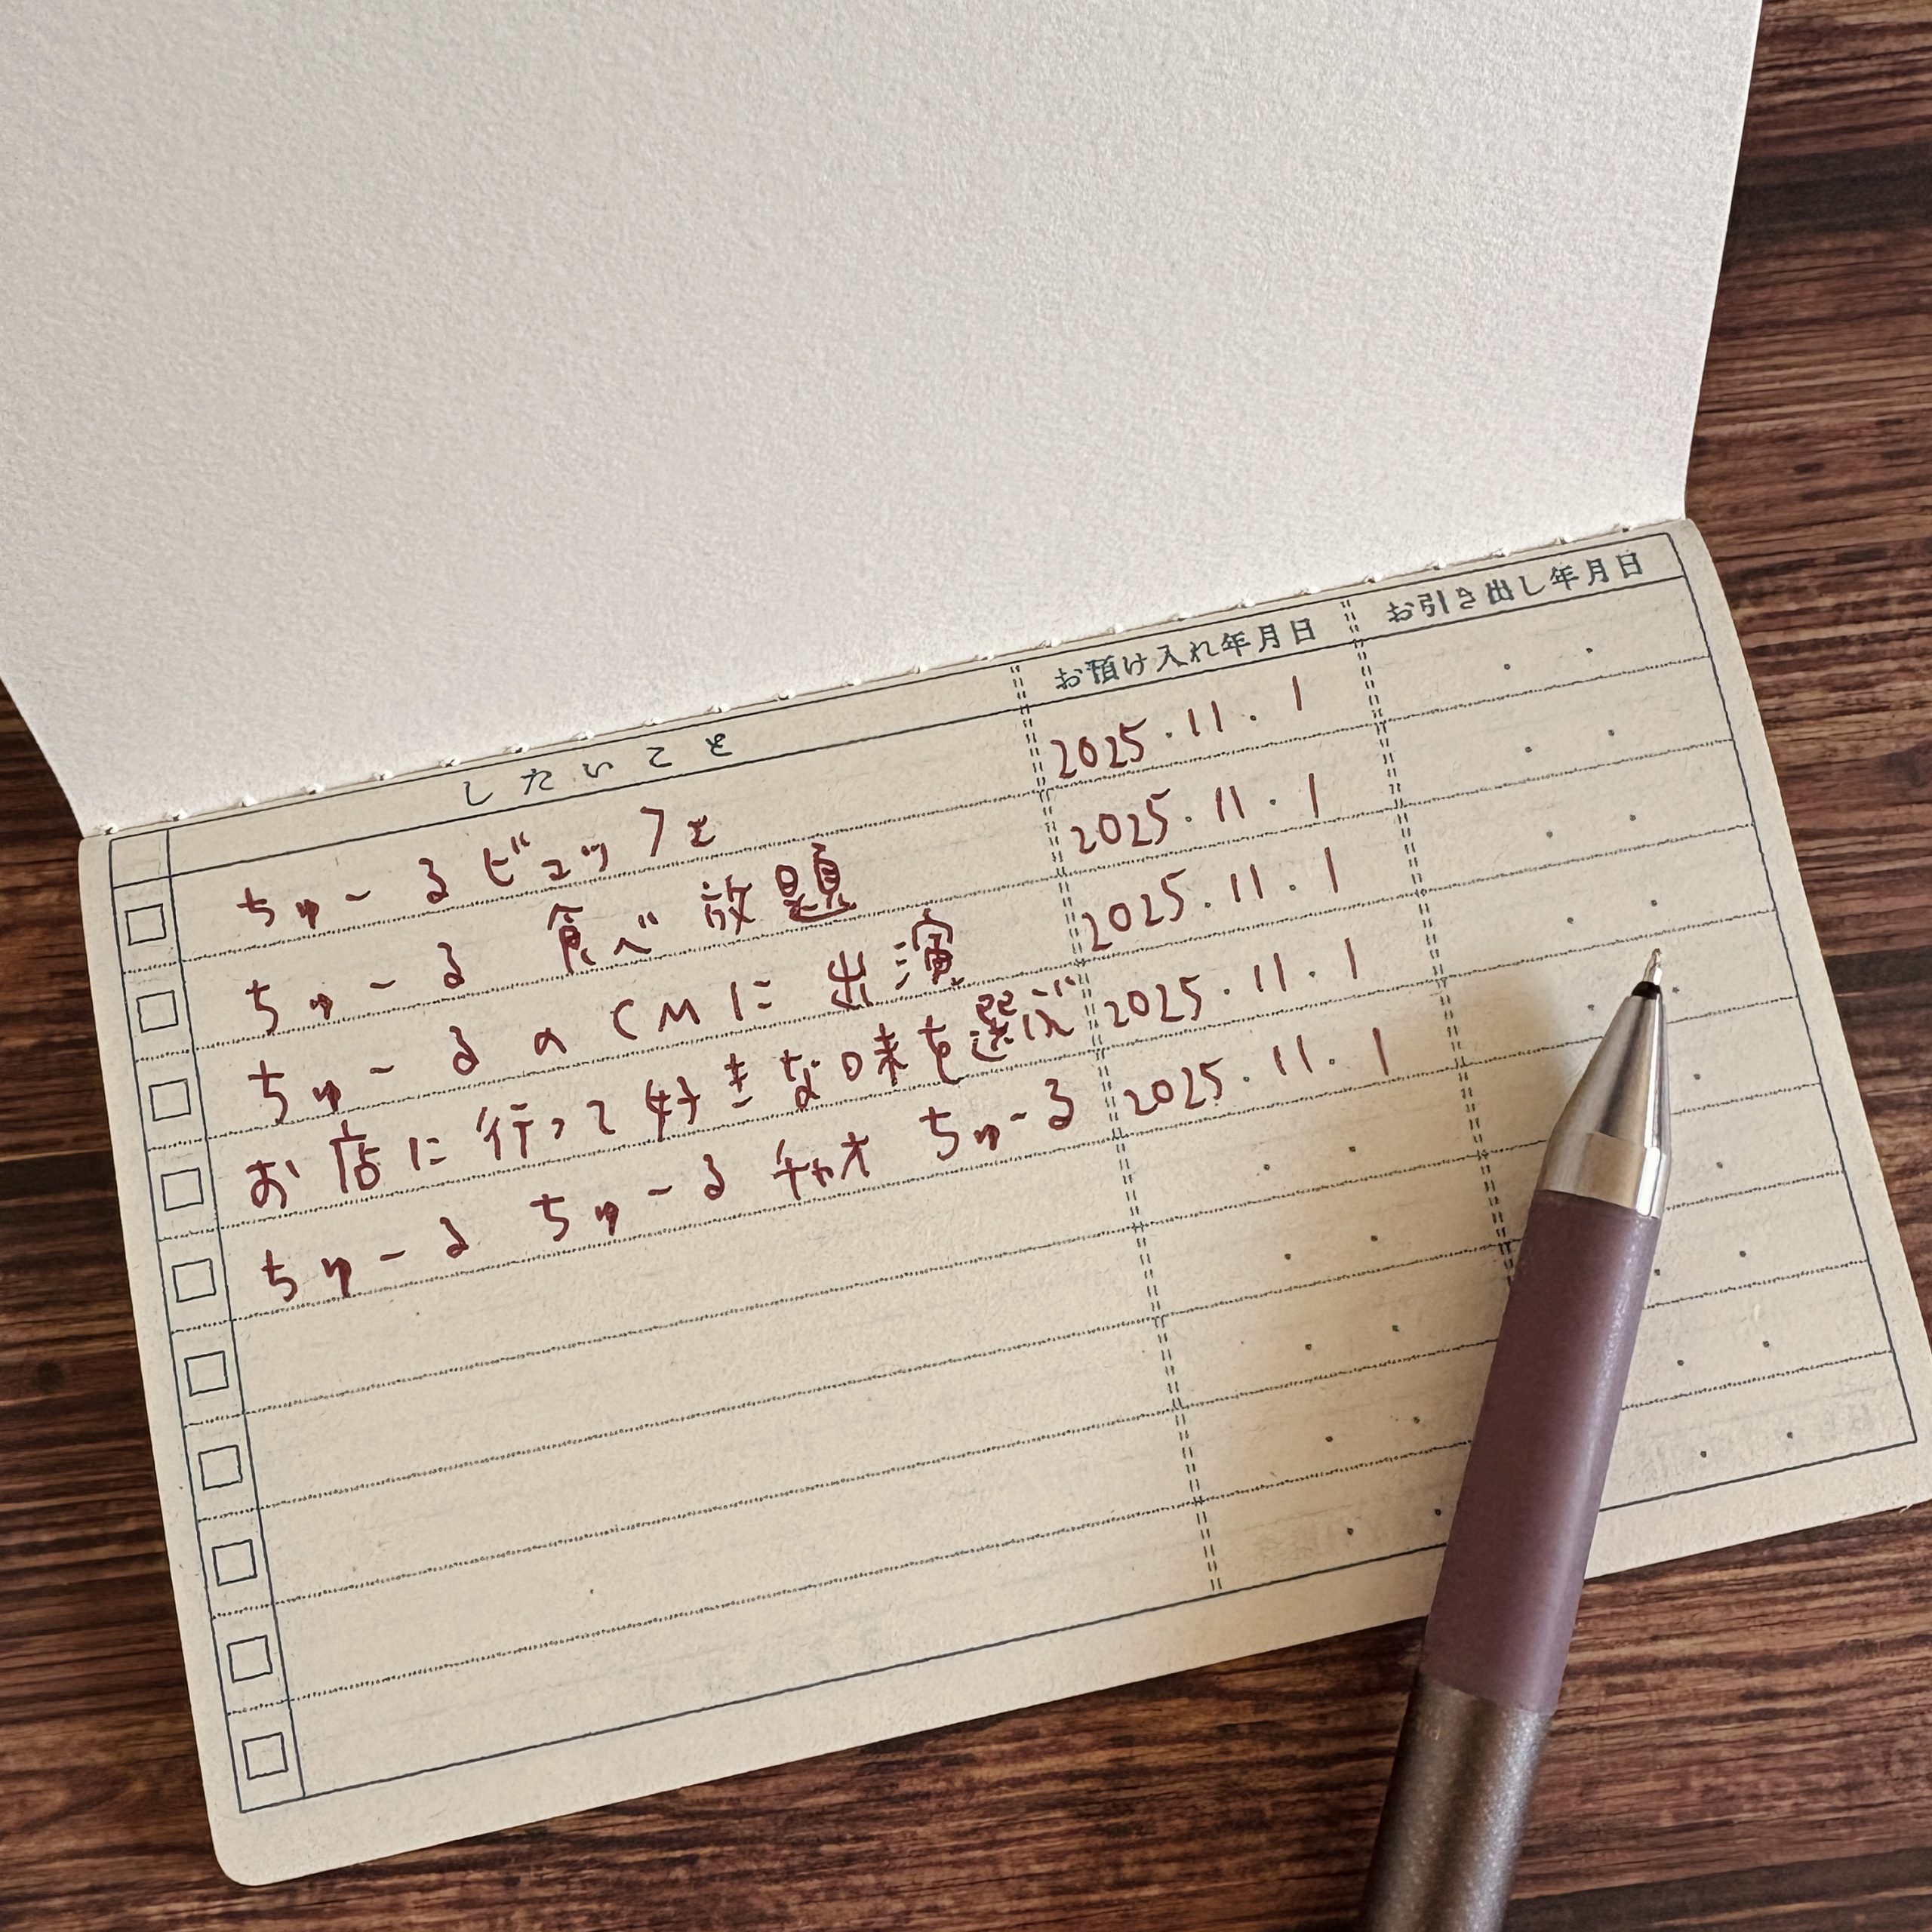 したいこと お預け入れ年月日 お引き出し年月日
ちゅ～るビュッフェ 2025.11.1
ちゅ～る 食べ放題 2025.11.1
ちゅ～るのCMに出演 2025.11.1
お店に行って好きな味を選ぶ 2025.11.1
ちゅ～る ちゅ～る チャオ ちゅ～る 2025.11.1